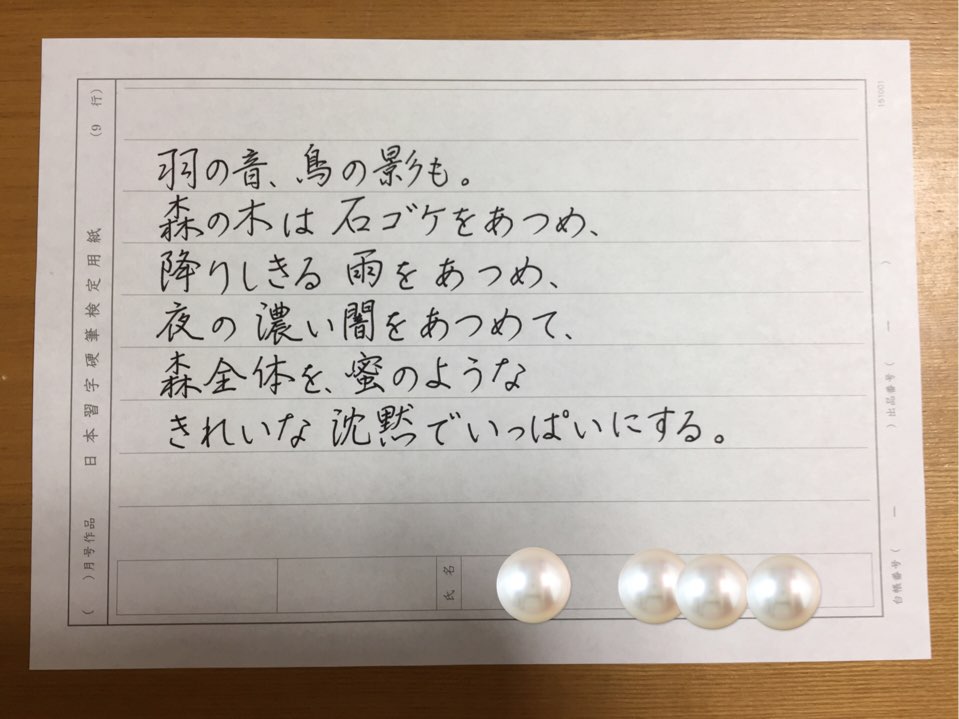 羽の音、鳥の影も。
森の木は 石ゴケをあつめ、
降りしきる 雨をあつめ、
夜の 濃い闇をあつめて、
森全体を、蜜のような
きれいな 沈黙でいっぱいにする。
(9 行)
日本習字硬筆検定用紙
( )月号作品
氏名
151001
)出品番号(
台帳番号( ー ー )